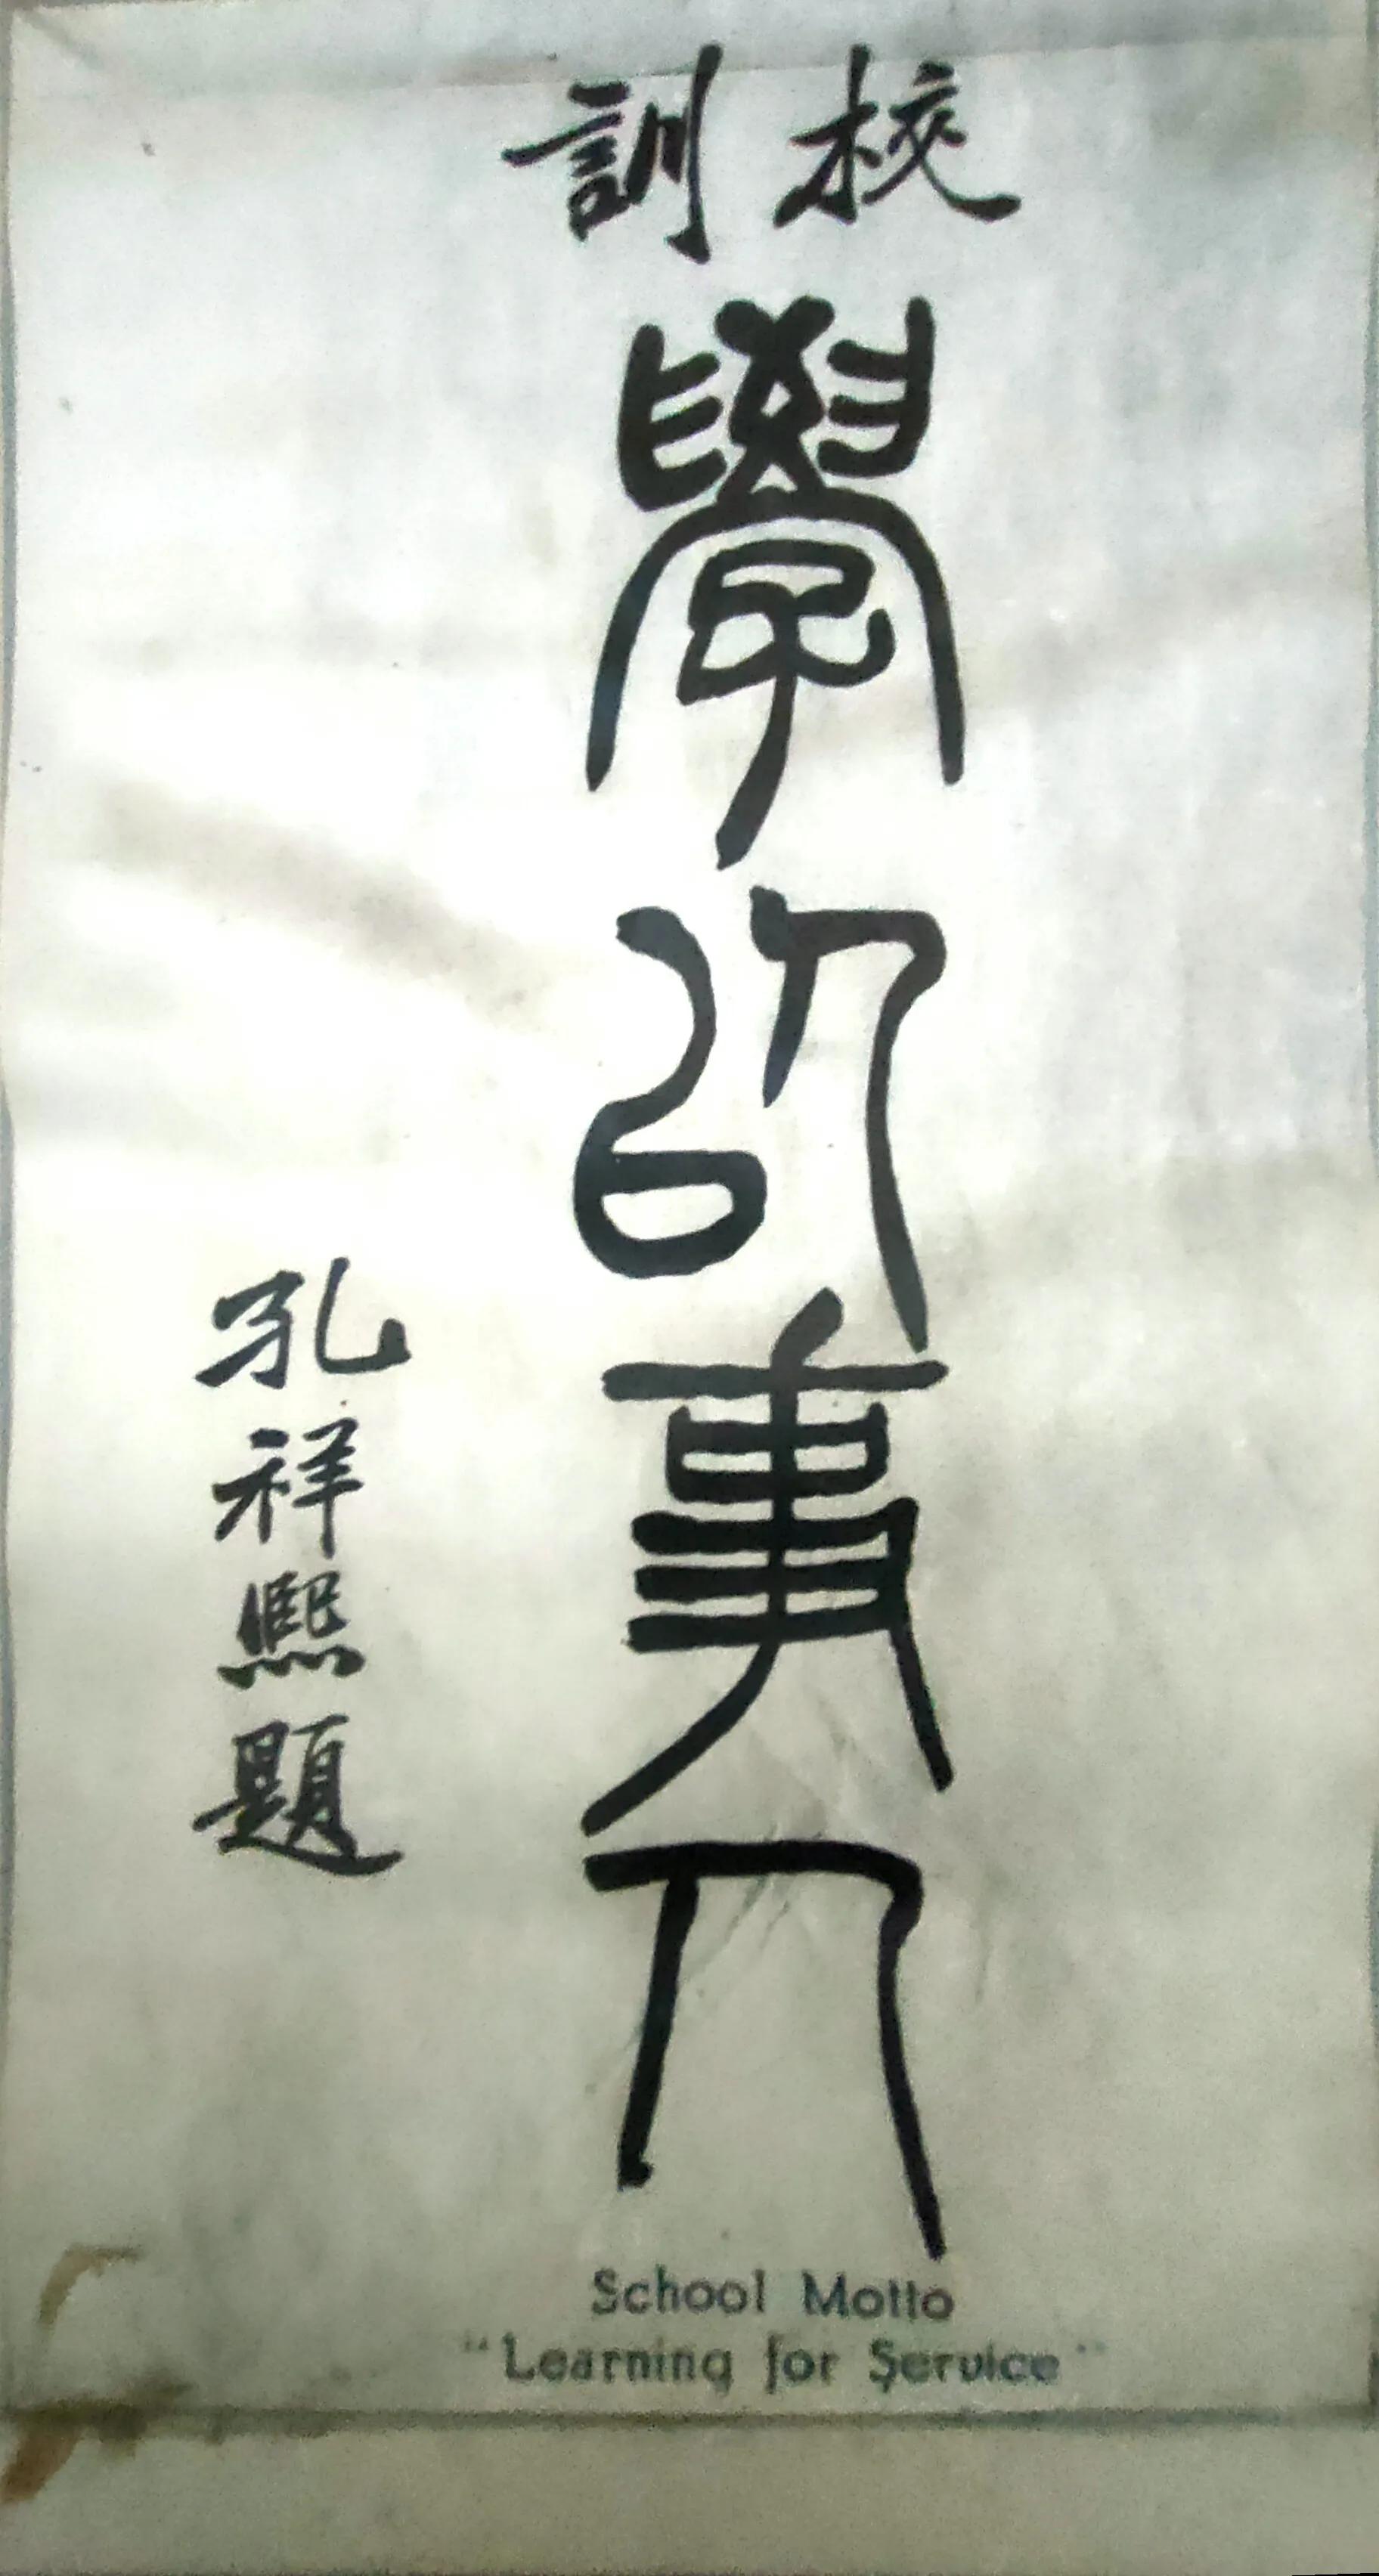 校訓
學以事人
孔祥熙題
School Motto
"Learning for Service"